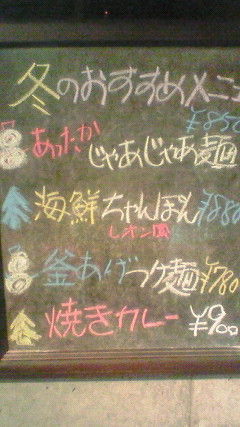 冬のおすすめメニュ
¥850
あったか
じゃあじゃあ麺
海鮮ちゃんぽん ¥880
レオン風
釜あげつケ麺 ¥780
焼きカレー ¥900